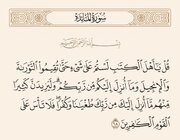 سُورَةُ المَائِدَةِ
بِسْمِ اللَّهِ الرَّحْمَٰنِ الرَّحِيمِ
قُلْ يَٰٓأَهْلَ ٱلْكِتَٰبِ لَسْتُمْ عَلَىٰ شَىْءٍ حَتَّىٰ تُقِيمُوا۟ ٱلتَّوْرَىٰةَ
وَٱلْإِنجِيلَ وَمَآ أُنزِلَ إِلَيْكُم مِّن رَّبِّكُمْ ۗ وَلَيَزِيدَنَّ كَثِيرًا
مِّنْهُم مَّآ أُنزِلَ إِلَيْكَ مِن رَّبِّكَ طُغْيَٰنًا وَكُفْرًا ۖ فَلَا تَأْسَ عَلَى
ٱلْقَوْمِ ٱلْكَٰفِرِينَ